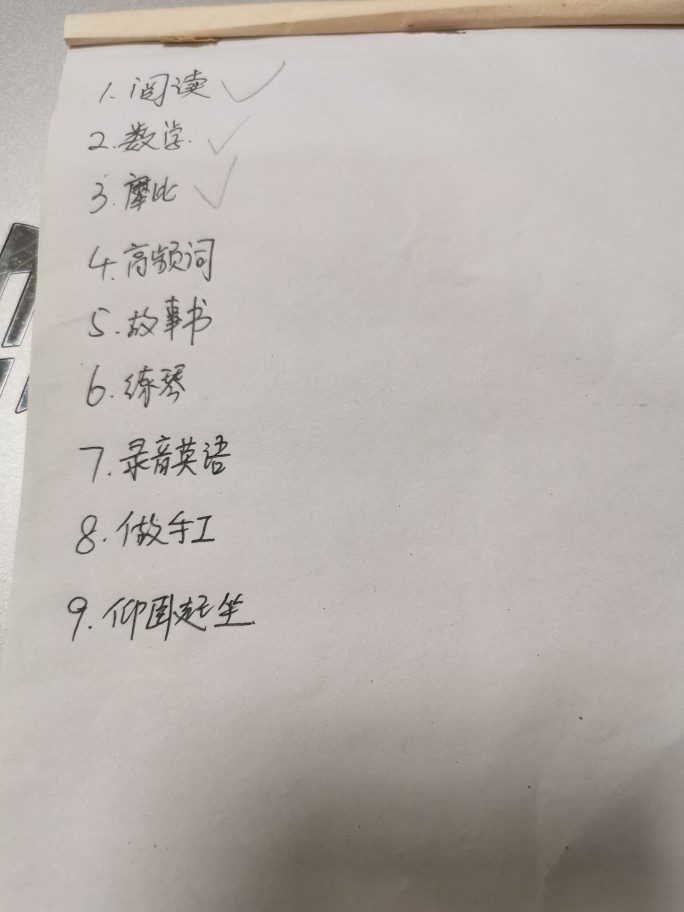 1. 阅读 ✓
2. 数学. ✓
3. 摩比 ✓
4. 高频词
5. 故事书
6. 练琴
7. 录音英语
8. 做手工
9. 仰卧起坐.